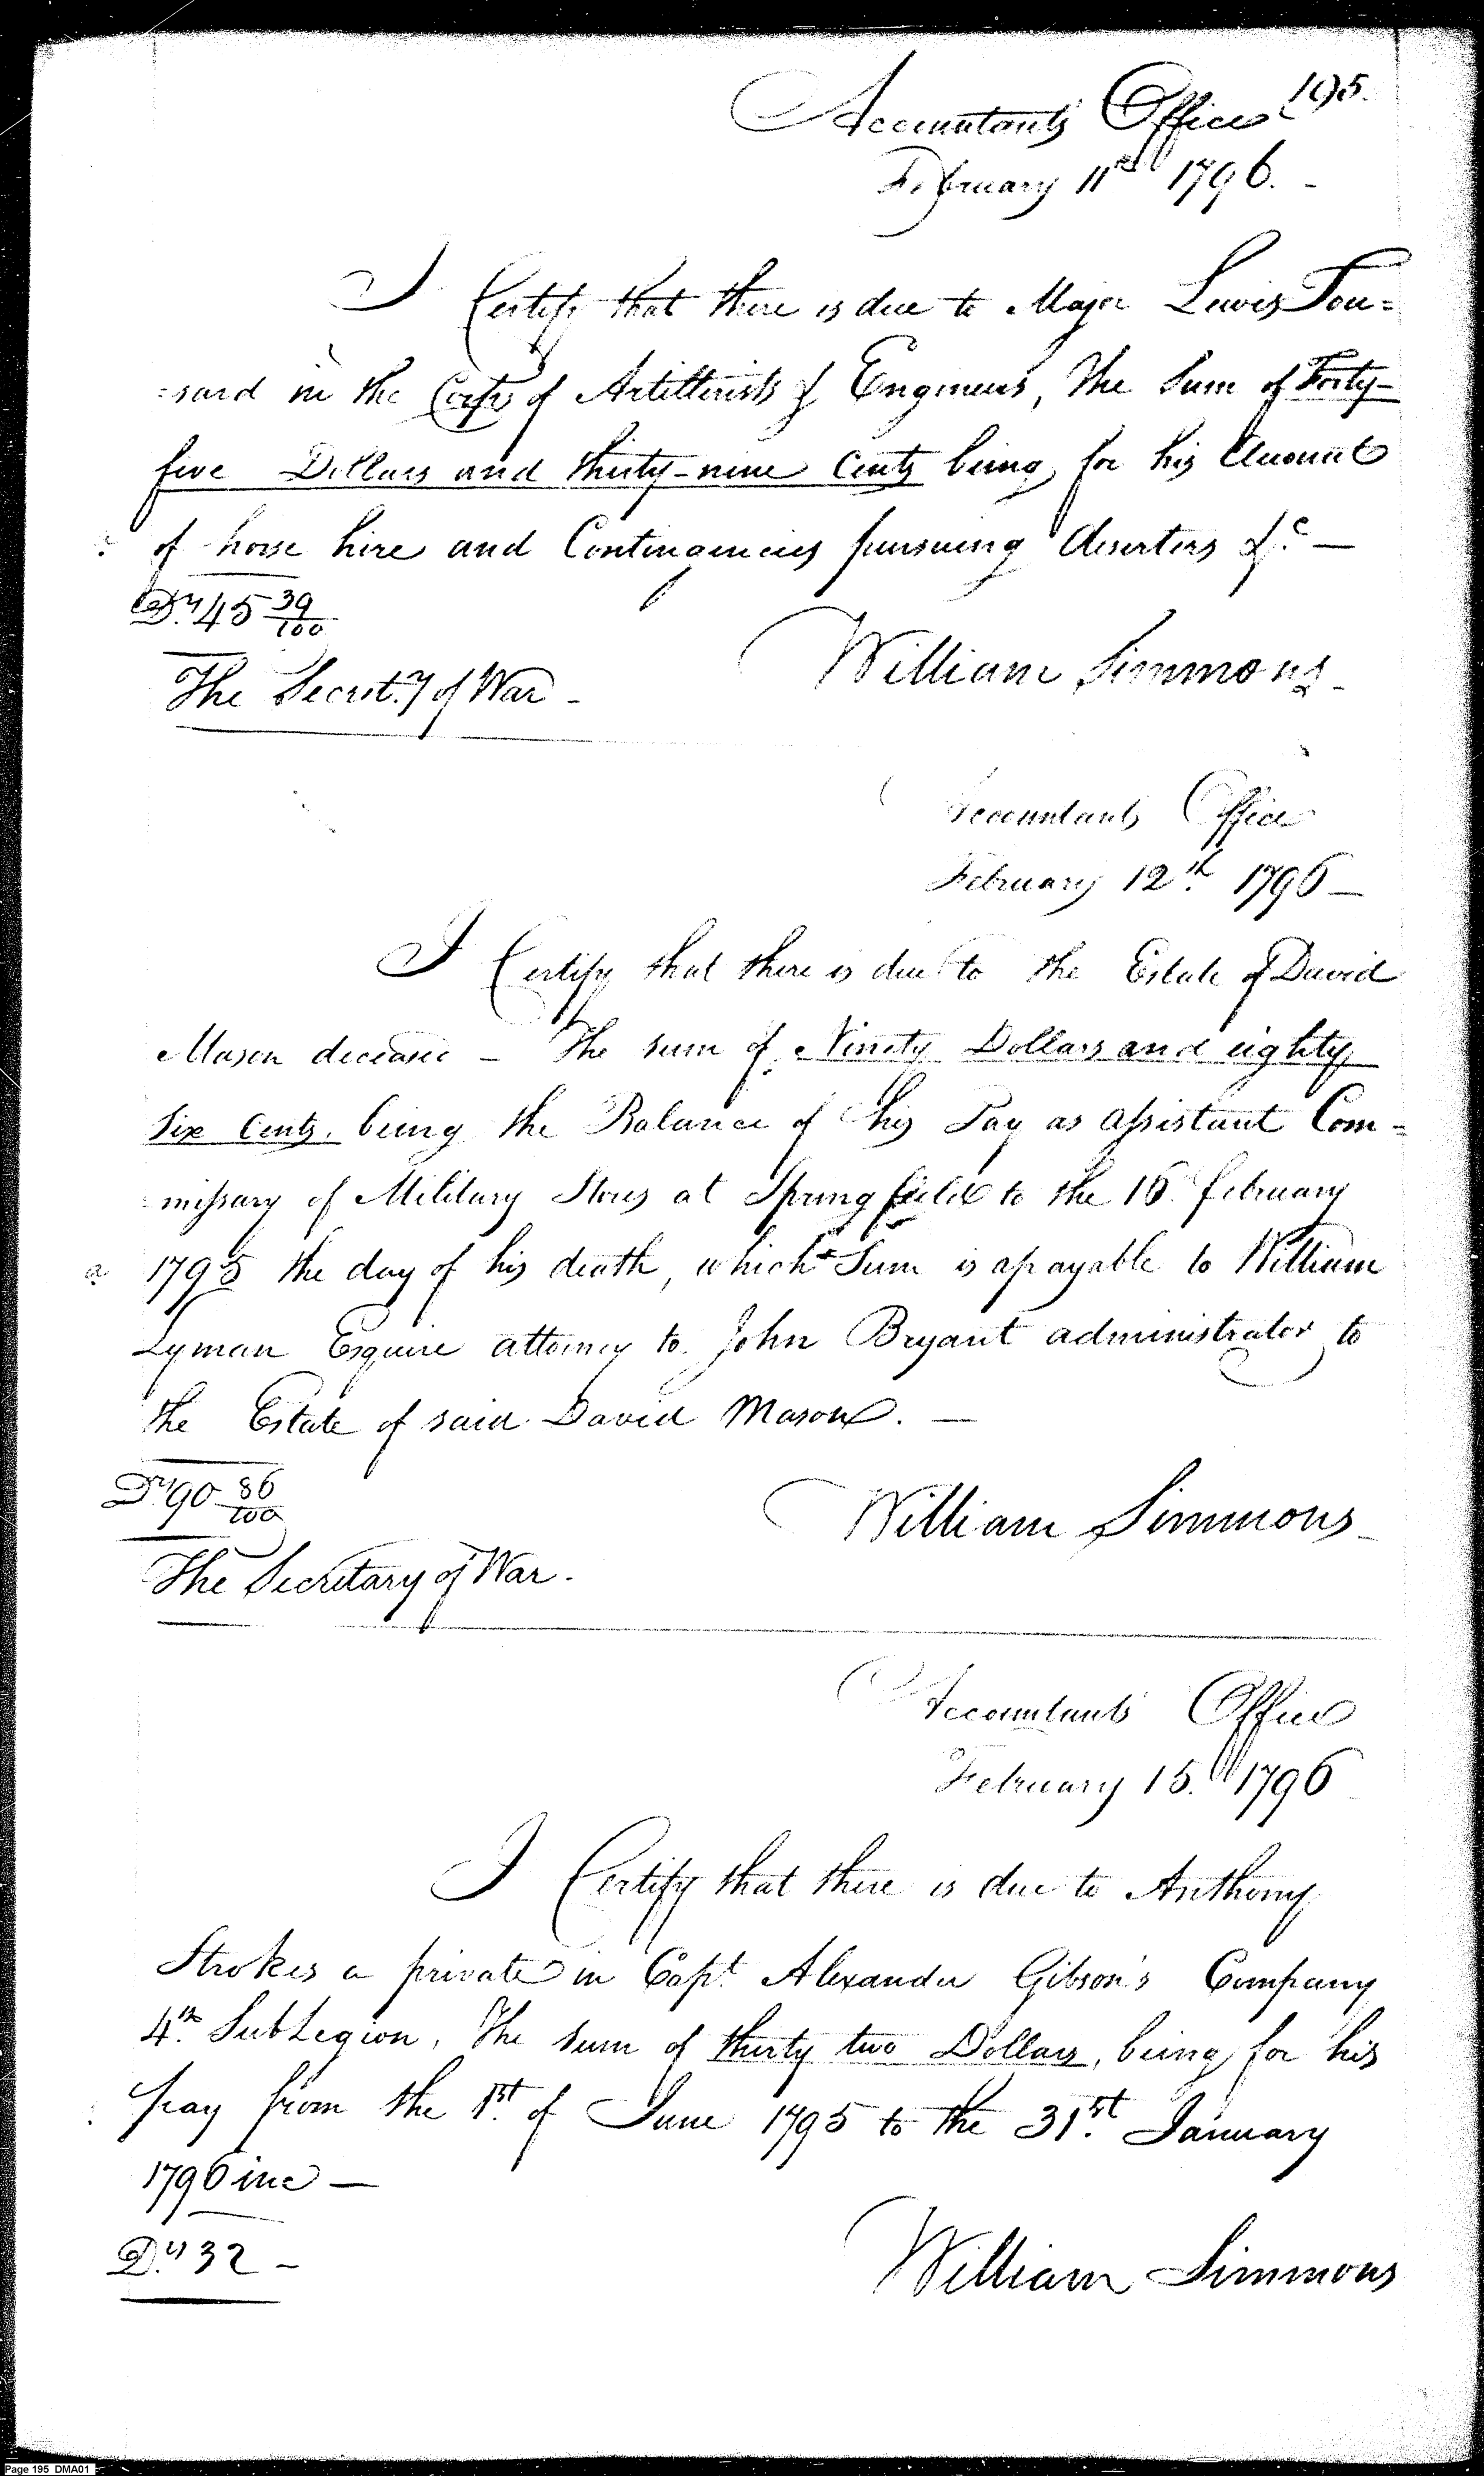 195.
Accountants Office
February 11th 1796. -
I Certify that there is due to Major Lewis Tou=
=sard in the Corps of Artillerists & Engineers, The Sum of Forty-
five Dollars and thirty-nine Cents being for his Account
of horse hire and Contingencies pursuing deserters &c. —
Drs 45 39/100
The Secret.y of War -
William Simmons -
Accountants Office
February 12th 1796 —
I Certify that there is due to the Estate of David
Mason deceased - The sum of Ninety Dollars and eighty
six Cents. being the Balance of his Pay as assistant Com=
=missary of Military Stores at Springfield to the 16 february
1795 the day of his death, which Sum is apayable to William
Lyman Esquire attorney to John Bryant administrator to
the Estate of said David Mason. —
Drs 90 86/100
William Simmons -
The Secretary of War.
Accountants Office
February 15. 1796
I Certify that there is due to Anthony
Strokes a private in Capt Alexander Gibson's Company
4th SubLegion, The sum of thirty two Dollars, being for his
pay from the 1st. of June 1795 to the 31st. January
1796 inc —
Drs 32 -
William Simmons
Page 195 DMA01